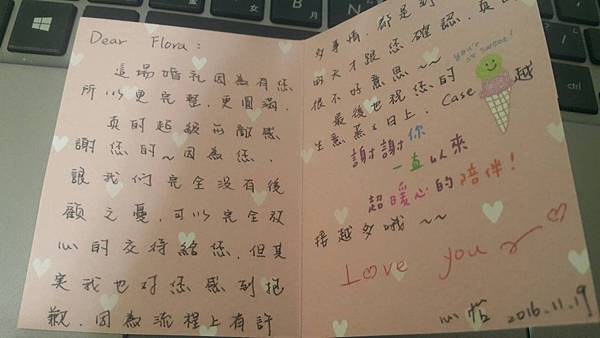 Dear Flora:
這場婚礼因為有您
所以更完整,更圓滿.
真的超級無敵感
謝您的~因為您,
讓我們完全沒有後
顧之憂,可以完全放
心的交待給您,但其
實我也對您感到抱
歉,因為流程上有許
多事情,都是到
的天才跟您確認,真
很不好意思~~
you're so sweet!
最後也祝您的
生意蒸々日上,Case 越
謝謝你
一直以來
超暖心的陪伴!
接越多哦~~
Love you
心恬 2016.11.19